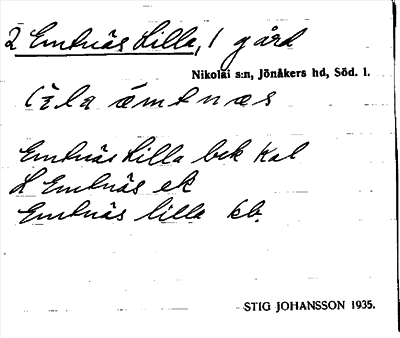 2 Emtnäs Lilla, 1 gård
Nikolai s:n, Jönåkers hd, Söd. l.
lila ämtnæs
Emtnäs Lilla bek Kal
L Emtnäs ek
Emtnäs lilla kb.
STIG JOHANSSON 1935.